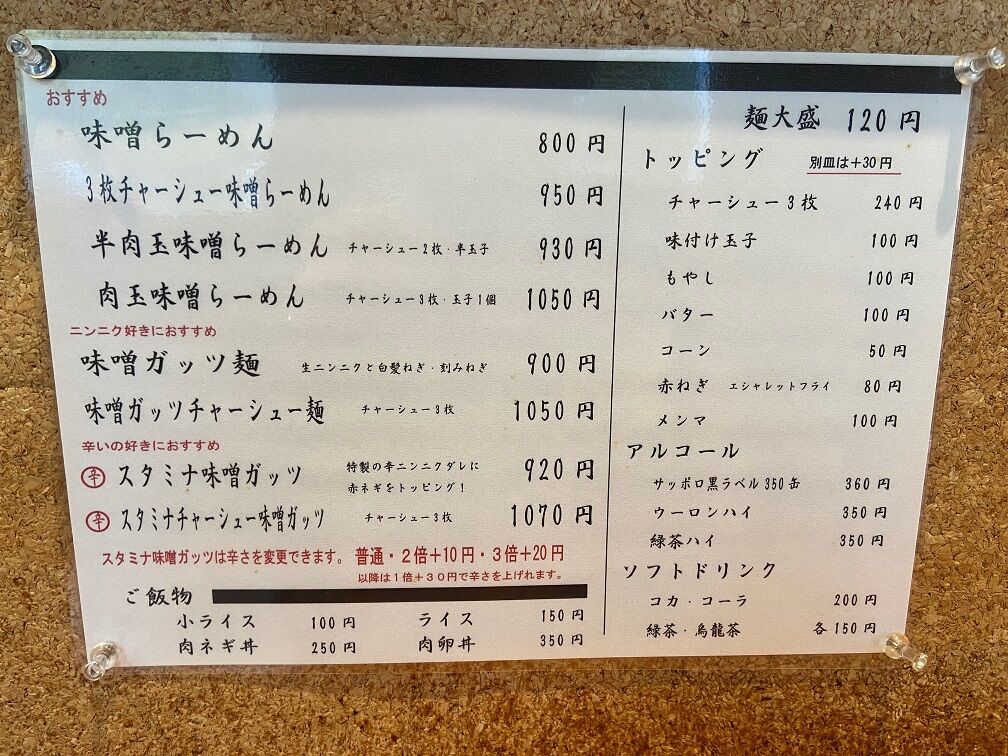 おすすめ
味噌らーめん 800円
3枚チャーシュー味噌らーめん 950円
半肉玉味噌らーめん チャーシュー2枚・半玉子 930円
肉玉味噌らーめん チャーシュー3枚・玉子1個 1050円
ニンニク好きにおすすめ
味噌ガッツ麺 生ニンニクと白髪ねぎ・刻みねぎ 900円
味噌ガッツチャーシュー麺 チャーシュー3枚 1050円
辛いの好きにおすすめ
辛 スタミナ味噌ガッツ 特製の辛ニンニクダレに 920円
赤ネギをトッピング!
辛 スタミナチャーシュー味噌ガッツ チャーシュー3枚 1070円
スタミナ味噌ガッツは辛さを変更できます。 普通・2倍+10円・3倍+20円
以降は1倍+30円で辛さを上げれます。
ご飯物
小ライス 100円 ライス 150円
肉ネギ丼 250円 肉卵丼 350円
麺大盛 120円
トッピング 別皿は+30円
チャーシュー3枚 240円
味付け玉子 100円
もやし 100円
バター 100円
コーン 50円
赤ねぎ エシャレットフライ 80円
メンマ 100円
アルコール
サッポロ黒ラベル350缶 360円
ウーロンハイ 350円
緑茶ハイ 350円
ソフトドリンク
コカ・コーラ 200円
緑茶・烏龍茶 各150円